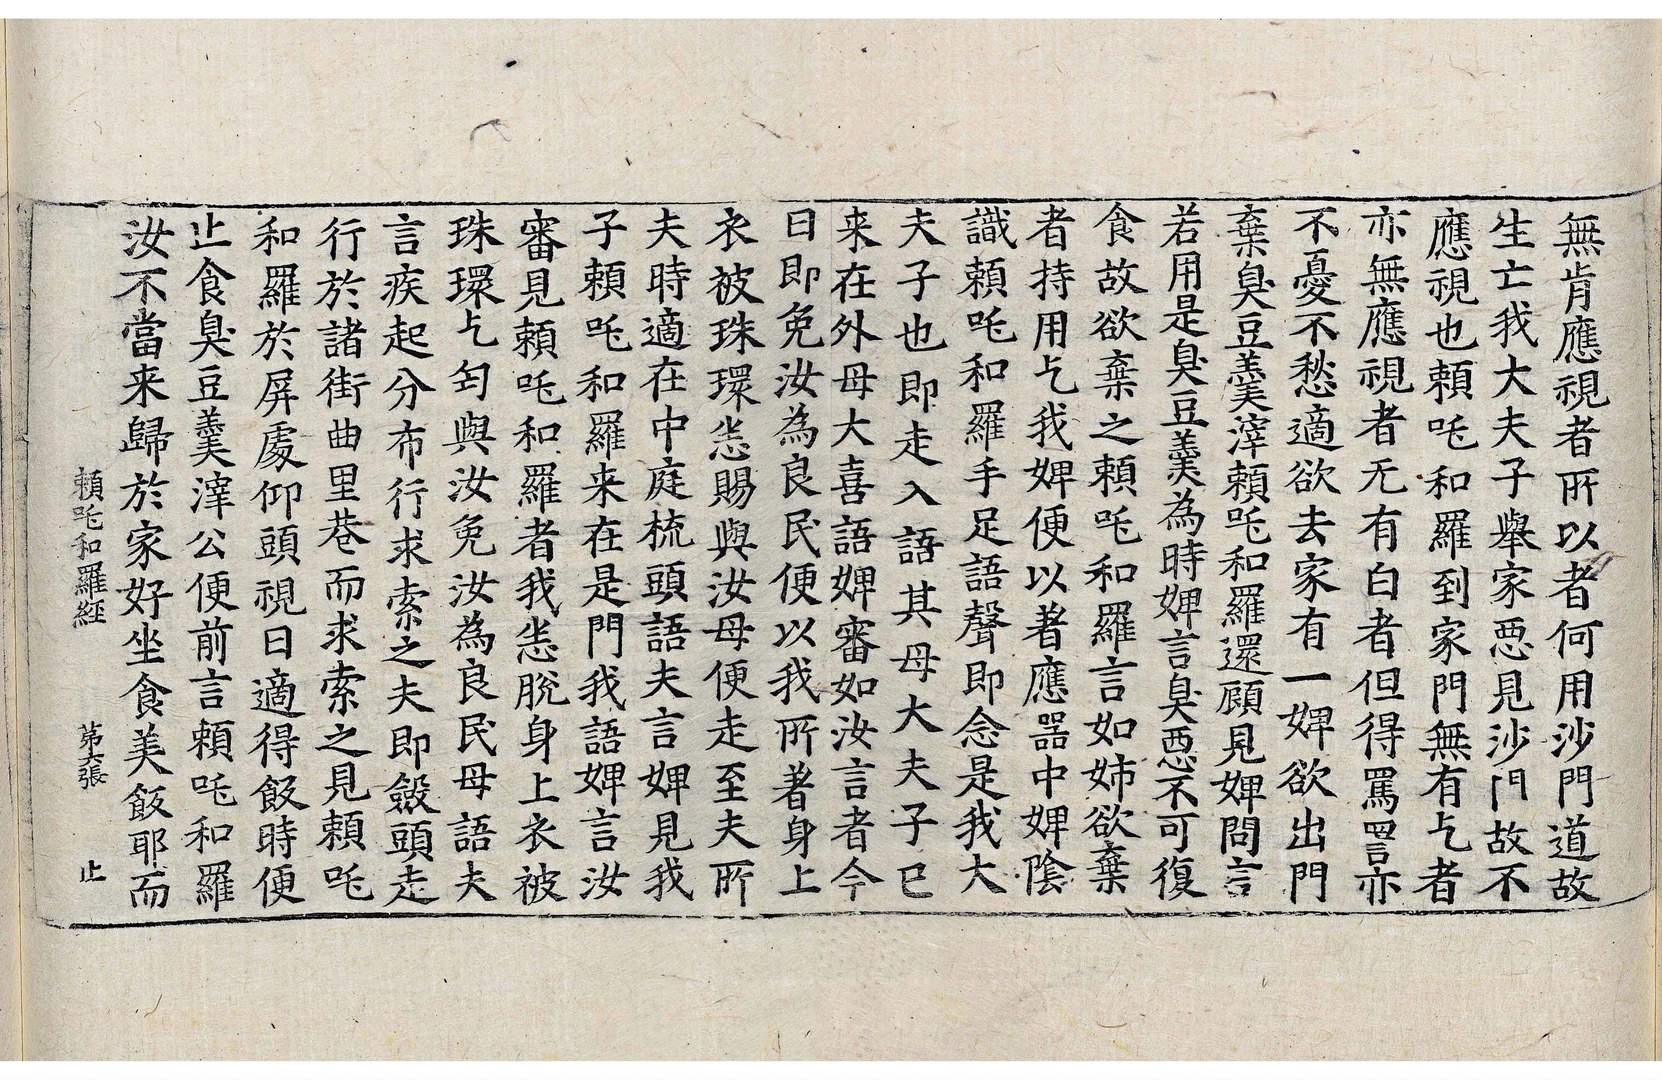 無肯應視者所以者何用沙門道故
生亡我大夫子舉家惡見沙門故不
應視也頼吒和羅到家門無有乞者
亦無應視者无有白者但得罵詈亦
不憂不愁適欲去家有一婢欲出門
棄臭豆羹滓頼吒和羅還顧見婢問言
若用是臭豆羹為時婢言臭惡不可復
食故欲棄之頼吒和羅言如姊欲棄
者持用乞我婢便以著應器中婢陰
識頼吒和羅手足語聲即念是我大
夫子也即走入語其母大夫子已
来在外母大喜語婢審如汝言者今
日即免汝為良民便以我所著身上
衣被珠環悉賜與汝母便走至夫所
夫時適在中庭梳頭語夫言婢見我
子頼吒和羅来在是門我語婢言汝
審見頼吒和羅者我悉脫身上衣被
珠環乞匄與汝免汝為良民母語夫
言疾起分布行求索之夫即斂頭走
行於諸街曲里巷而求索之見頼吒
和羅於屏處仰頭視日適得飯時便
止食臭豆羹滓公便前言頼吒和羅
汝不當来歸於家好坐食美飯耶而
頼吒和羅經 第六張 止